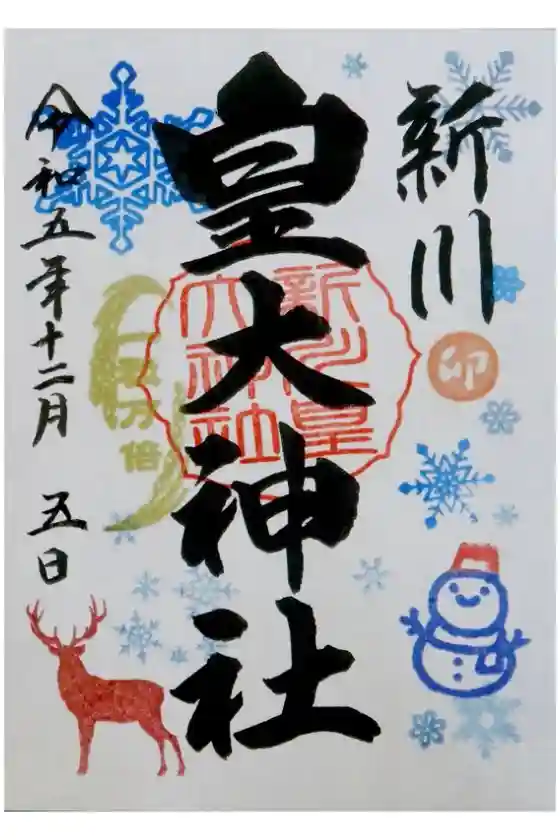 新川
卯
皇大神社
新川皇
大神社
一粒万倍
令和五年十二月 五日